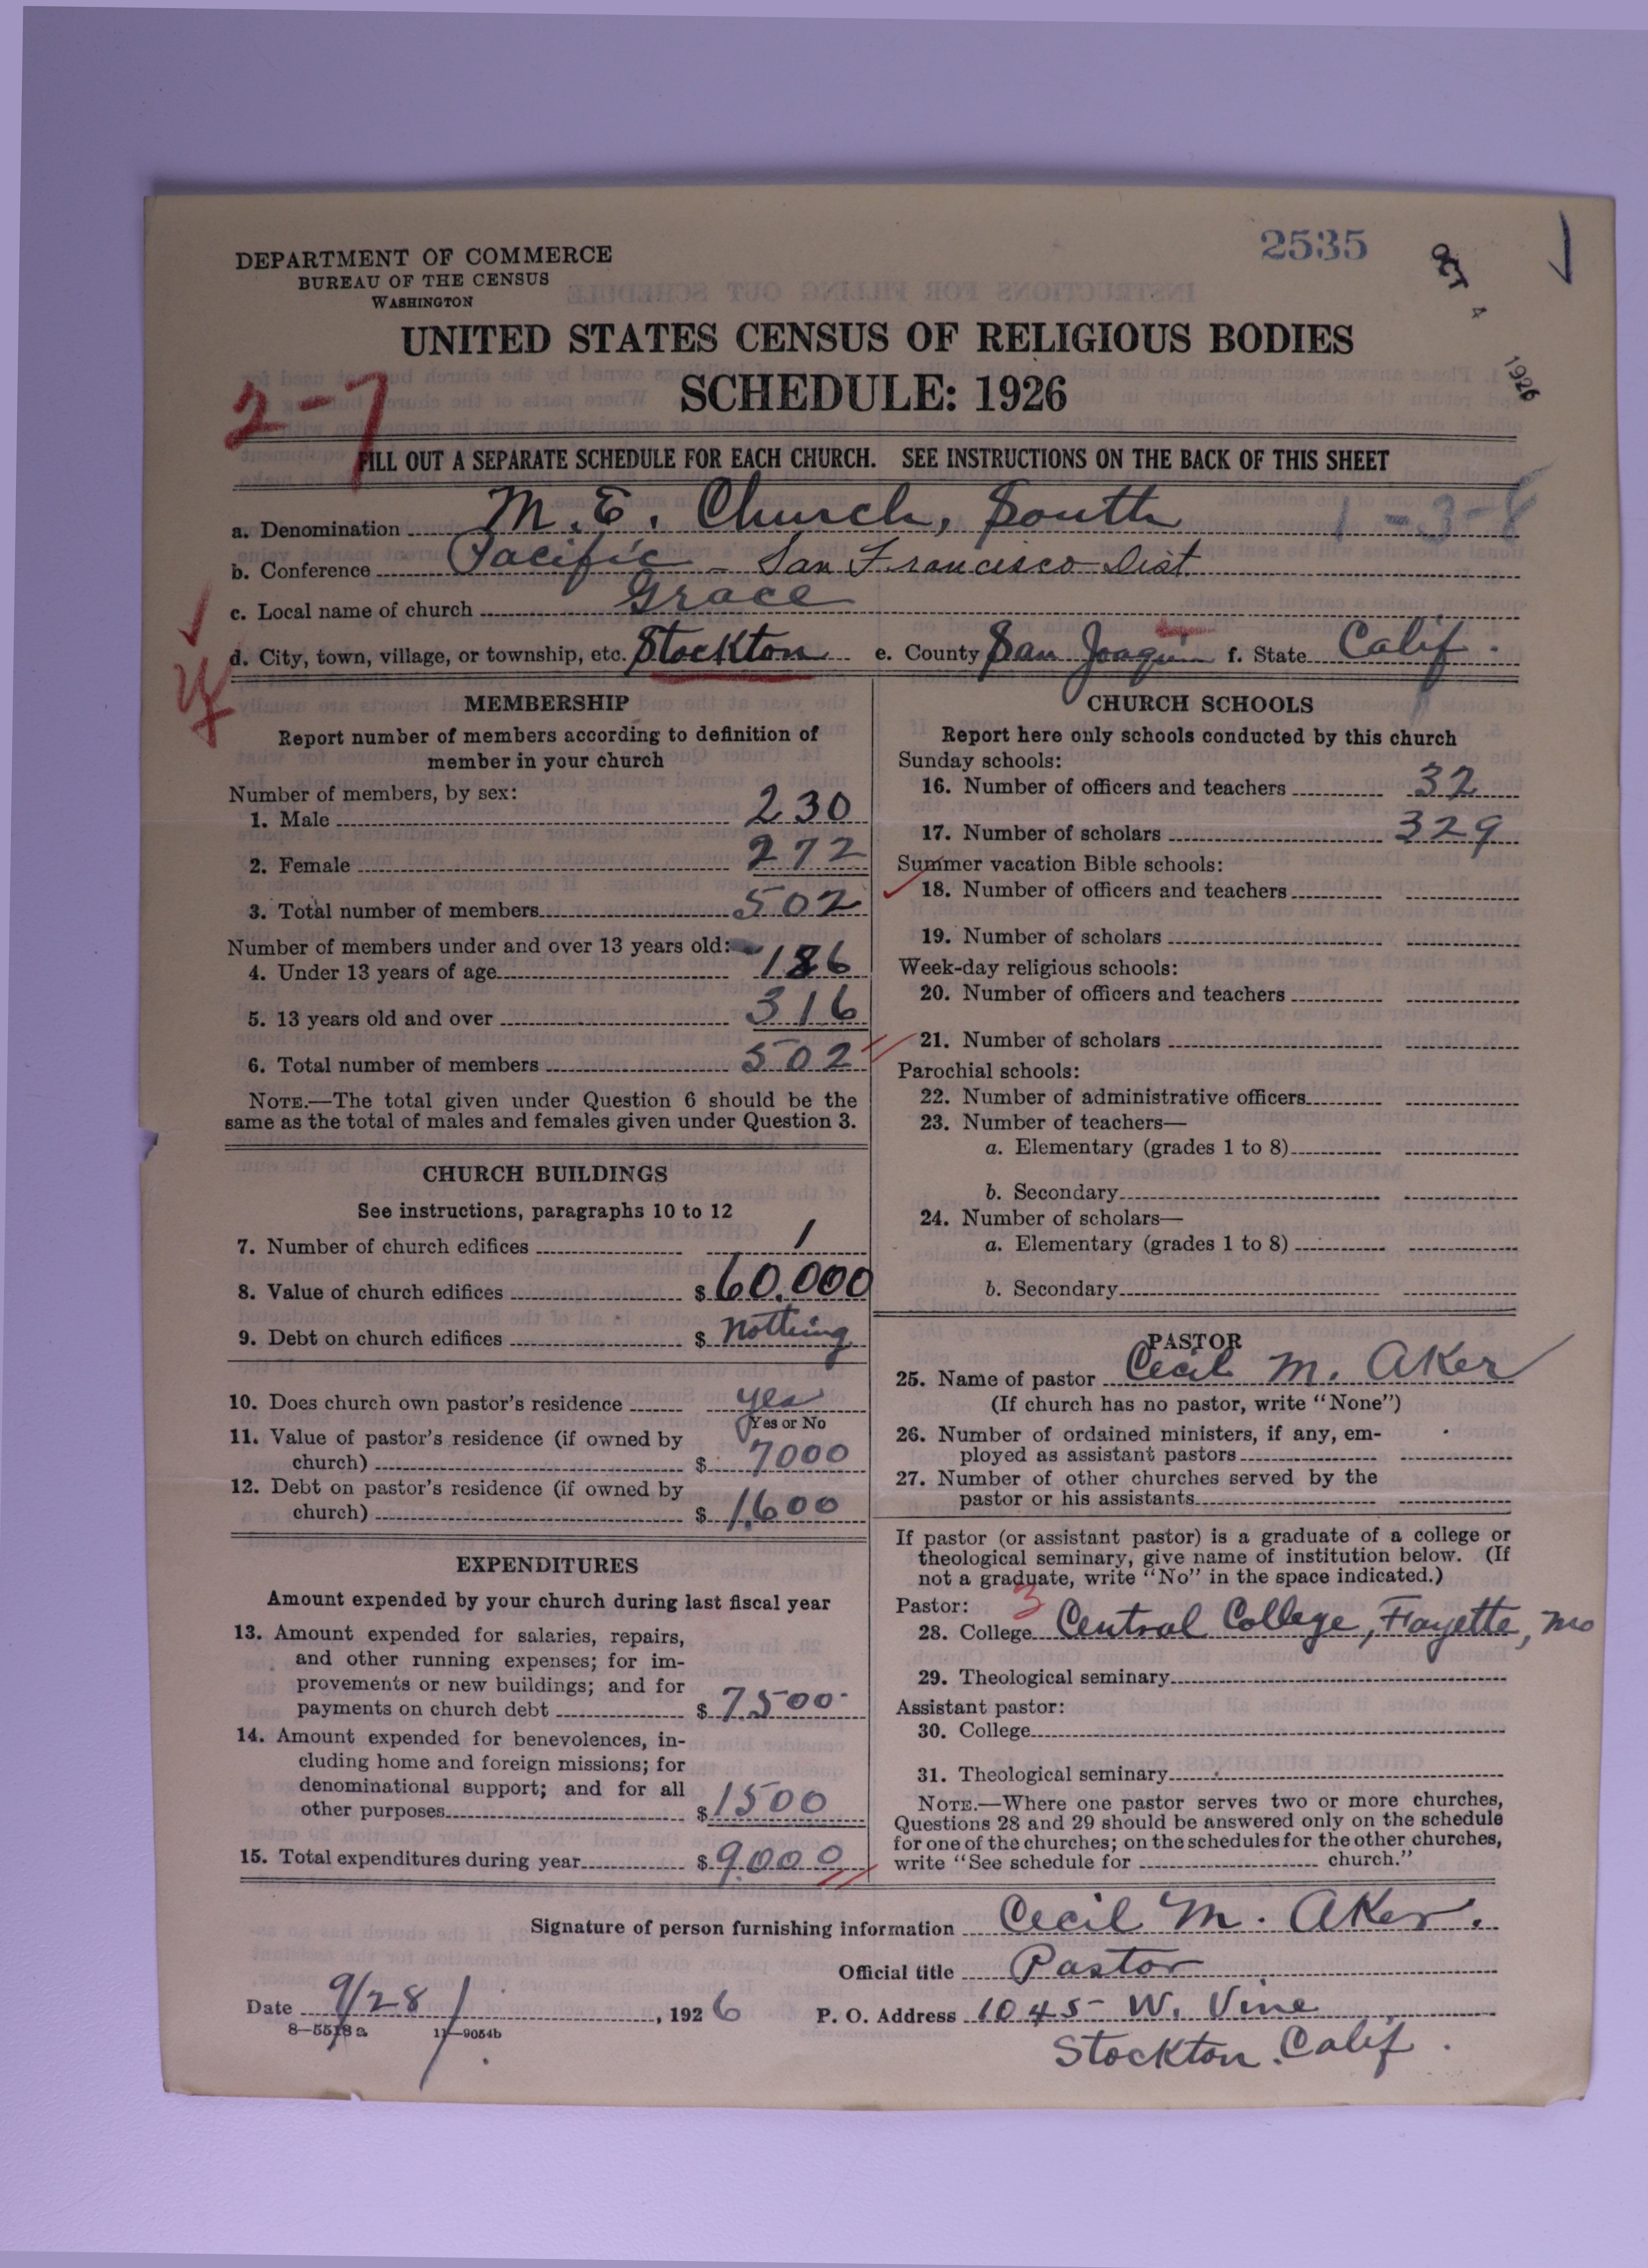 2535
OCT 4 1926
DEPARTMENT OF COMMERCE
BUREAU OF THE CENSUS
WASHINGTON
UNITED STATES CENSUS OF RELIGIOUS BODIES
SCHEDULE: 1926
2-7
FILL OUT A SEPARATE SCHEDULE FOR EACH CHURCH. SEE INSTRUCTIONS ON THE BACK OF THIS SHEET
1-3-8
a. Denomination M. E. Church, South
b. Conference Pacific - San Francisco Dist
c. Local name of church Grace
d. City, town, village, or township, etc. Stockton e. County San Joaquin f. State Calif.
MEMBERSHIP
Report number of members according to definition of
member in your church
Number of members, by sex:
1. Male 230
2. Female 272
3. Total number of members 502
Number of members under and over 13 years old:
4. Under 13 years of age 186
5. 13 years old and over 316
6. Total number of members 502
NOTE.—The total given under Question 6 should be the
same as the total of males and females given under Question 3.
CHURCH BUILDINGS
See instructions, paragraphs 10 to 12
7. Number of church edifices 1
8. Value of church edifices $ 60,000
9. Debt on church edifices $ nothing
10. Does church own pastor's residence yes
Yes or No
11. Value of pastor's residence (if owned by
church) $ 7000
12. Debt on pastor's residence (if owned by
church) $ 1,600
EXPENDITURES
Amount expended by your church during last fiscal year
13. Amount expended for salaries, repairs,
and other running expenses; for im-
provements or new buildings; and for
payments on church debt $ 7500
14. Amount expended for benevolences, in-
cluding home and foreign missions; for
denominational support; and for all
other purposes $ 1500
15. Total expenditures during year $ 9000
CHURCH SCHOOLS
Report here only schools conducted by this church
Sunday schools:
16. Number of officers and teachers 32
17. Number of scholars 329
Summer vacation Bible schools:
18. Number of officers and teachers
19. Number of scholars
Week-day religious schools:
20. Number of officers and teachers
21. Number of scholars
Parochial schools:
22. Number of administrative officers
23. Number of teachers—
a. Elementary (grades 1 to 8)
b. Secondary
24. Number of scholars—
a. Elementary (grades 1 to 8)
b. Secondary
PASTOR
25. Name of pastor Cecil M. Aker
(If church has no pastor, write "None")
26. Number of ordained ministers, if any, em-
ployed as assistant pastors
27. Number of other churches served by the
pastor or his assistants
If pastor (or assistant pastor) is a graduate of a college or
theological seminary, give name of institution below. (If
not a graduate, write "No" in the space indicated.)
Pastor: 3
28. College Central College, Fayette, Mo
29. Theological seminary
Assistant pastor:
30. College
31. Theological seminary
NOTE.—Where one pastor serves two or more churches,
Questions 28 and 29 should be answered only on the schedule
for one of the churches; on the schedules for the other churches,
write "See schedule for church."
Signature of person furnishing information Cecil M. Aker.
Official title Pastor
Date 9/28/, 1926 P. O. Address 1045 W. Vine
Stockton, Calif.
8—5518 a 11—9054b